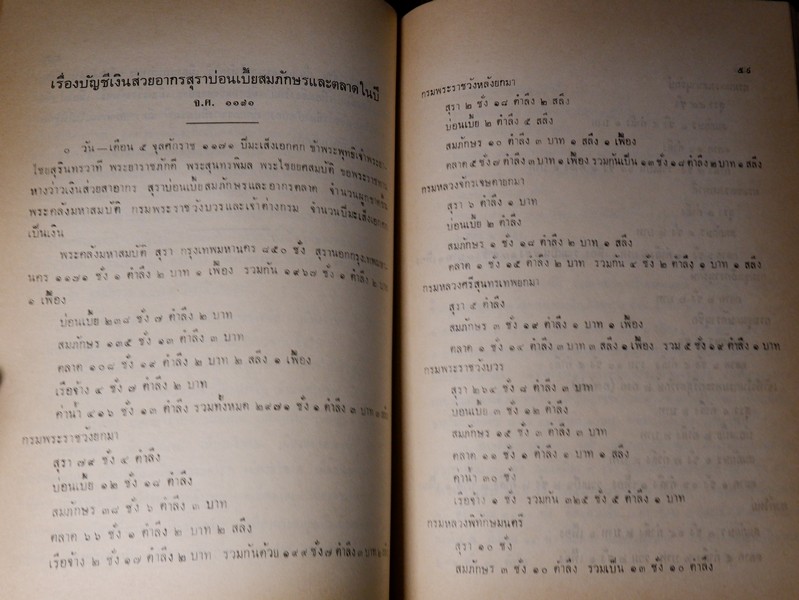 เรื่องบัญชีเงินส่วยอากรสุราบ่อนเบี้ยสมภักษรและตลาดในปี
จ.ศ. ๑๑๗๑
๐ วัน—เดือน ๕ จุลศักราช ๑๑๗๑ ปีมะเส็งเอกศก ข้าพระพุทธิเจ้าพระยา
ไชยสุรินทรวาที พระยาราชภักดี พระสุนทรพิมล พระไชยยศสมบัติ ขอพระราชทาน
หางว่าวเงินส่วยสาอากร สุราบ่อนเบี้ยสมภักษรและอากรตลาด จำนวน
พระคลังมหาสมบัติ กรมพระราชวังบวรและเจ้าต่างกรม จำนวนปีมะเส็งเอกศก
เป็นเงิน
พระคลังมหาสมบัติ สุรา กรุงเทพมหานคร ๘๕๐ ชั่ง สุรานอกกรุงเทพมหา
นคร ๑๑๗๑ ชั่ง ๑ ตำลึง ๒ บาท ๑ เฟื้อง รวมกัน ๑๙๖๗ ชั่ง ๑ ตำลึง ๒ บาท
๑ เฟื้อง
บ่อนเบี้ย ๒๓๘ ชั่ง ๗ ตำลึง ๒ บาท
สมภักษร ๑๓๕ ชั่ง ๑๓ ตำลึง ๓ บาท
ตลาด ๑๐๘ ชั่ง ๑๙ ตำลึง ๒ บาท ๒ สลึง ๑ เฟื้อง
เรือจ้าง ๔ ชั่ง ๗ ตำลึง ๒ บาท
ค่าน้ำ ๔๑๖ ชั่ง ๑๓ ตำลึง รวมทั้งหมด ๒๙๗๑ ชั่ง ๑ ตำลึง ๓ บาท
กรมพระราชวังยกมา
สุรา ๗๙ ชั่ง ๔ ตำลึง
บ่อนเบี้ย ๑๒ ชั่ง ๑๘ ตำลึง
สมภักษร ๓๘ ชั่ง ๖ ตำลึง ๓ บาท
ตลาด ๖๖ ชั่ง ๑ ตำลึง ๒ บาท ๒ สลึง
เรือจ้าง ๒ ชั่ง ๑๗ ตำลึง ๒ บาท รวมกันด้วย ๑๙๙ ชั่ง ๗ ตำลึง ๓ บาท
๕๙
กรมพระราชวังหลังยกมา
สุรา ๒ ชั่ง ๑๘ ตำลึง ๒ สลึง
บ่อนเบี้ย ๒ ตำลึง ๕ สลึง
สมภักษร ๑๐ ตำลึง ๓ บาท ๑ สลึง ๑ เฟื้อง
ตลาด ๕ ชั่ง ๗ ตำลึง ๓ บาท ๑ เฟื้อง รวมกันเป็น ๑๓ ชั่ง ๑๘ ตำลึง ๒ บาท ๑ สลึง
กรมหลวงจักรเจษดายกมา
สุรา ๖ ตำลึง ๑ บาท
บ่อนเบี้ย ๒ ตำลึง
สมภักษร ๑ ชั่ง ๑๘ ตำลึง ๒ บาท ๑ สลึง
ตลาด ๑ ชั่ง ๑๕ ตำลึง ๒ บาท รวมกัน ๔ ชั่ง ๒ ตำลึง ๑ บาท ๑ สลึง
กรมหลวงศรีสุนทรเทพยกมา
สุรา ๕ ตำลึง
สมภักษร ๓ ชั่ง ๑๙ ตำลึง ๑ บาท ๑ เฟื้อง
ตลาด ๑ ชั่ง ๑๔ ตำลึง ๓ บาท ๓ สลึง ๑ เฟื้อง รวม ๕ ชั่ง ๑๙ ตำลึง ๑ บาท
กรมพระราชวังบวร
สุรา ๒๖๔ ชั่ง ๘ ตำลึง ๓ บาท
บ่อนเบี้ย ๓ ชั่ง ๑๒ ตำลึง
สมภักษร ๑๕ ชั่ง ๓ ตำลึง ๓ บาท
ตลาด ๑๑ ชั่ง ๑ ตำลึง ๑ บาท ๑ สลึง
ค่าน้ำ ๓๐ ชั่ง
เรือจ้าง ๑ ชั่ง รวมกัน ๓๒๕ ชั่ง ๕ ตำลึง ๑ บาท
กรมหลวงพิทักษมนตรี
สุรา ๑๐ ชั่ง
สมภักษร ๓ ชั่ง ๑๐ ตำลึง รวมเป็น ๑๓ ชั่ง ๑๐ ตำลึง